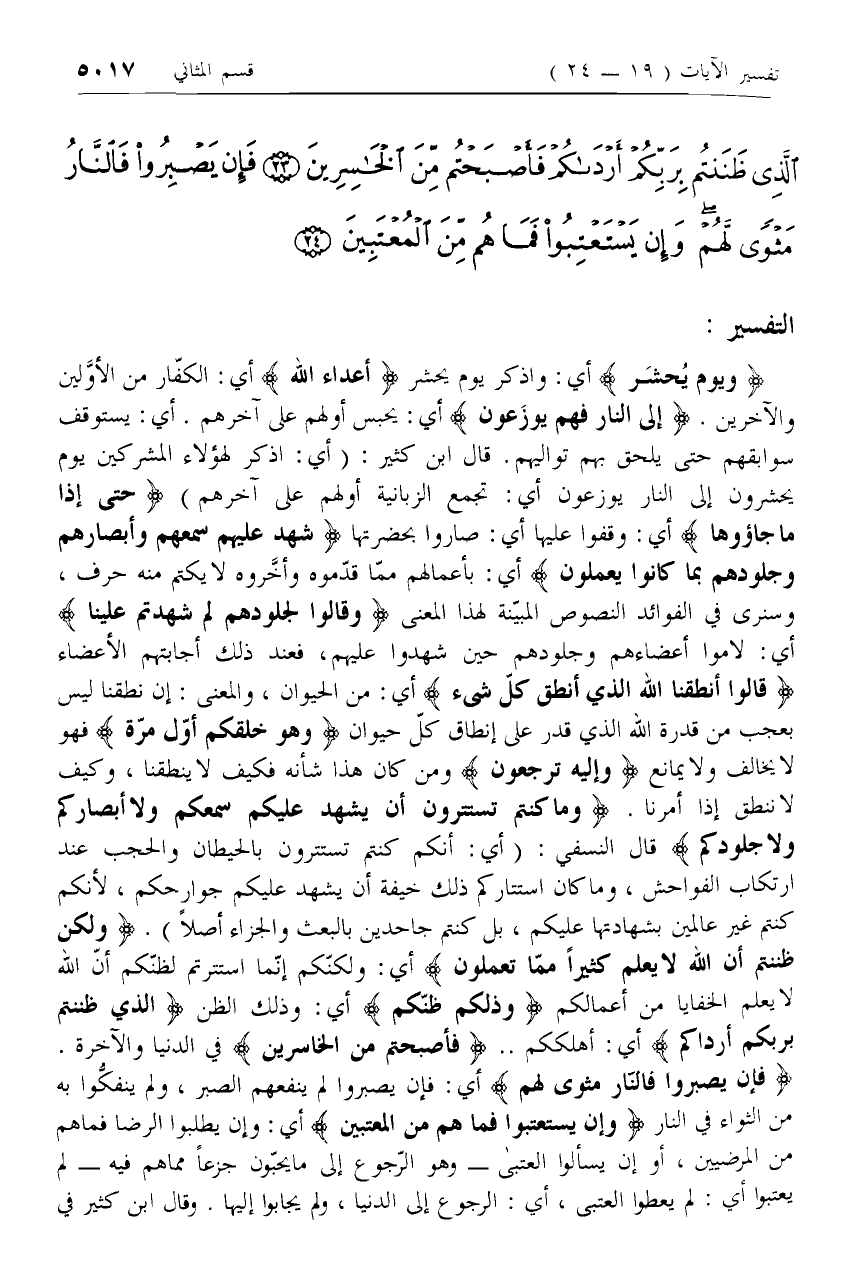 تفسير الآيات ( ١٩ ــ ٢٤ ) قسم المثاني ٥٠١٧
ٱلَّذِى ظَنَنتُم بِرَبِّكُمْ أَرْدَىٰكُمْ فَأَصْبَحْتُم مِّنَ ٱلْخَٰسِرِينَ ﴿٢٣﴾ فَإِن يَصْبِرُوا۟ فَٱلنَّارُ
مَثْوًى لَّهُمْ ۖ وَإِن يَسْتَعْتِبُوا۟ فَمَا هُم مِّنَ ٱلْمُعْتَبِينَ ﴿٢٤﴾
التفسير :
﴿ ويوم يُحشَر ﴾ أي : واذكر يوم يحشر ﴿ أعداء الله ﴾ أي : الكفّار من الأوَّلين
والآخرين . ﴿ إلى النار فهم يوزَعون ﴾ أي : يحبس أولهم على آخرهم . أي : يستوقف
سوابقهم حتى يلحق بهم تواليهم. قال ابن كثير : ( أي : اذكر لهؤلاء المشركين يوم
يحشرون إلى النار يوزعون أي : تجمع الزبانية أولهم على آخرهم ) ﴿ حتى إذا
ماجاؤوها ﴾ أي : وقفوا عليها أي : صاروا بحضرتها ﴿ شهد عليهم سمعهم وأبصارهم
وجلودهم بما كانوا يعملون ﴾ أي : بأعمالهم ممّا قدّموه وأخَّروه لايكتم منه حرف ،
وسنرى في الفوائد النصوص المبيّنة لهذا المعنى ﴿ وقالوا لجلودهم لم شهدتم علينا ﴾
أي : لاموا أعضاءهم وجلودهم حين شهدوا عليهم، فعند ذلك أجابتهم الأعضاء
﴿ قالوا أنطقنا الله الذي أنطق كلّ شيء ﴾ أي : من الحيوان ، والمعنى : إن نطقنا ليس
بعجب من قدرة الله الذي قدر على إنطاق كلّ حيوان ﴿ وهو خلقكم أوّل مرّة ﴾ فهو
لايخالف ولايمانع ﴿ وإليه ترجعون ﴾ ومن كان هذا شأنه فكيف لاينطقنا ، وكيف
لاننطق إذا أمرنا . ﴿ وماكنتم تستترون أن يشهد عليكم سمعكم ولاأبصاركم
ولاجلودكم ﴾ قال النسفي : ( أي : أنكم كنتم تستترون بالحيطان والحجب عند
ارتكاب الفواحش ، وماكان استتاركم ذلك خيفة أن يشهد عليكم جوارحكم ، لأنكم
كنتم غير عالمين بشهادتها عليكم ، بل كنتم جاحدين بالبعث والجزاء أصلاً ) . ﴿ ولكن
ظننتم أن الله لايعلم كثيراً ممّا تعملون ﴾ أي : ولكنّكم إنّما استترتم لظنّكم أنّ الله
لايعلم الخفايا من أعمالكم ﴿ وذلكم ظنّكم ﴾ أي : وذلك الظن ﴿ الذي ظننتم
بربكم أرداكم ﴾ أي : أهلككم .. ﴿ فأصبحتم من الخاسرين ﴾ في الدنيا والآخرة .
﴿ فإن يصبروا فالنّار مثوى لهم ﴾ أي : فإن يصبروا لم ينفعهم الصبر ، ولم ينفكُّوا به
من الثواء في النار ﴿ وإن يستعتبوا فما هم من المعتبين ﴾ أي : وإن يطلبوا الرضا فماهم
من المرضيين ، أو إن يسألوا العتبىٰ ــ وهو الرّجوع إلى مايحبّون جزعاً مماهم فيه ــ لم
يعتبوا أي : لم يعطوا العتبى ، أي : الرجوع إلى الدنيا ، ولم يجابوا إليها . وقال ابن كثير في